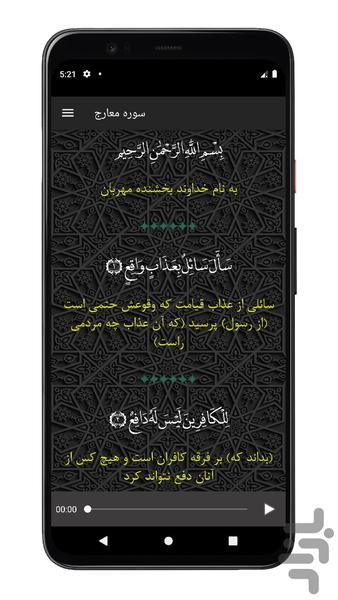 5:21
سوره معارج
بِسْمِ اللَّهِ الرَّحْمَٰنِ الرَّحِيمِ
به نام خداوند بخشنده مهربان
سَأَلَ سَائِلٌ بِعَذَابٍ وَاقِعٍ ﴿١﴾
سائلی از عذاب قیامت که وقوعش حتمی است
(از رسول) پرسید (که آن عذاب چه مردمی
راست)
لِلْكَافِرِينَ لَيْسَ لَهُ دَافِعٌ ﴿٢﴾
(بداند که) بر فرقه کافران است و هیچ کس از
آنان دفع نتواند کرد
00:00
بازار